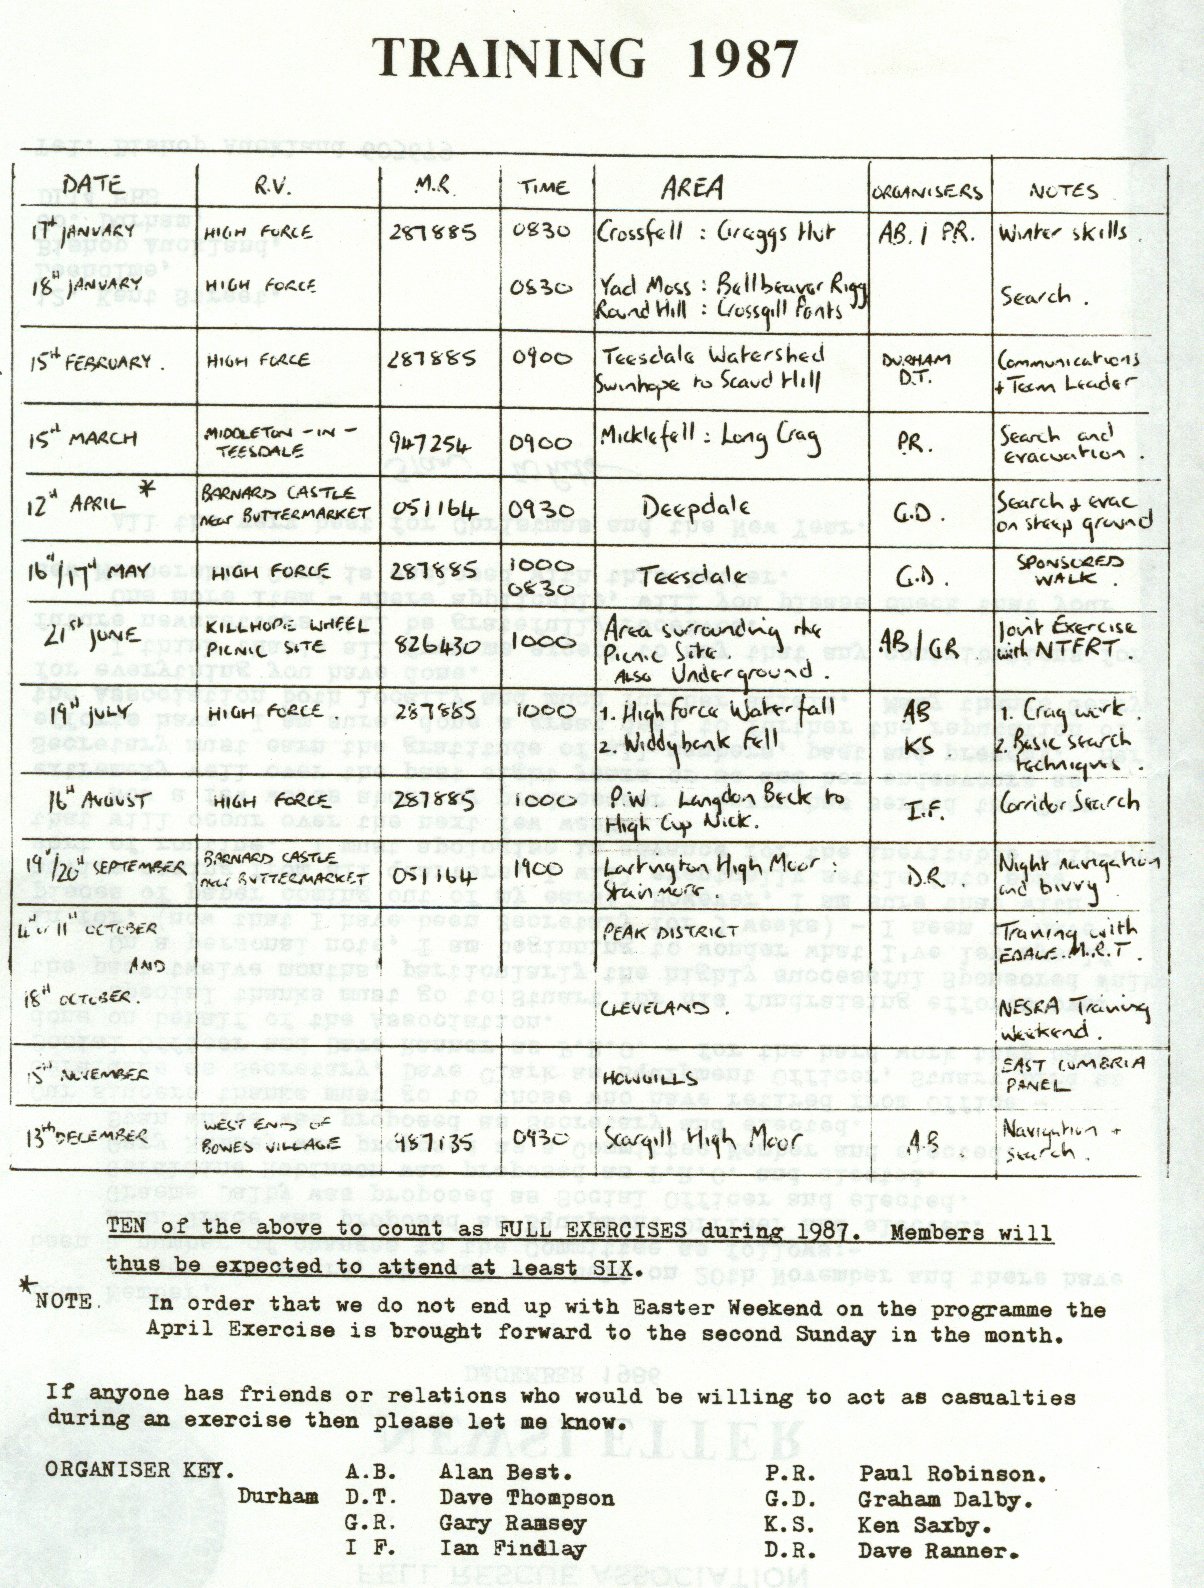 TRAINING 1987
DATE R.V. M.R. TIME AREA ORGANISERS NOTES
17th JANUARY HIGH FORCE 287885 0830 Crossfell : Greggs Hut AB. / P.R. Winter skills.
18th JANUARY HIGH FORCE 0830 Yad Moss : Bellbeaver Rigg Search.
Round Hill : Crossgill Pants
15th FEBRUARY. HIGH FORCE 287885 0900 Teesdale Watershed DURHAM Communications
Swinhope to Scaud Hill D.T. + Team Leader
15th MARCH MIDDLETON-IN- 947254 0900 Micklefell : Long Crag P.R. Search and
TEESDALE evacuation.
12th APRIL * BARNARD CASTLE 051164 0930 Deepdale G.D. Search & evac
near BUTTERMARKET on steep ground
16th/17th MAY HIGH FORCE 287885 1000 Teesdale G.D. SPONSORED
0830 WALK.
21st JUNE KILLHOPE WHEEL 826430 1000 Area surrounding the AB/GR. Joint Exercise
PICNIC SITE Picnic Site. with NTFRT.
ALSO Underground.
19th JULY HIGH FORCE 287885 1000 1. High Force Waterfall AB 1. Crag work.
2. Widdybank Fell KS 2. Basic search
techniques.
16th AUGUST HIGH FORCE 287885 1000 P.W. Langdon Beck to I.F. Corridor Search
High Cup Nick.
19th/20th SEPTEMBER BARNARD CASTLE 051164 1900 Lartington High Moor : D.R. Night navigation
near BUTTERMARKET Stainmore and bivvy.
4th or 11th OCTOBER PEAK DISTRICT Training with
AND EDALE. M.R.T.
18th OCTOBER. CLEVELAND. NESRA Training
Weekend.
15th NOVEMBER HOWGILLS EAST CUMBRIA
PANEL
13th DECEMBER WEST END OF 987135 0930 Scargill High Moor A.B. Navigation +
BOWES VILLAGE search.
TEN of the above to count as FULL EXERCISES during 1987. Members will
thus be expected to attend at least SIX.
*
NOTE. In order that we do not end up with Easter Weekend on the programme the
April Exercise is brought forward to the second Sunday in the month.
If anyone has friends or relations who would be willing to act as casualties
during an exercise then please let me know.
ORGANISER KEY. A.B. Alan Best. P.R. Paul Robinson.
Durham D.T. Dave Thompson G.D. Graham Dalby.
G.R. Gary Ramsey K.S. Ken Saxby.
I F. Ian Findlay D.R. Dave Ranner.